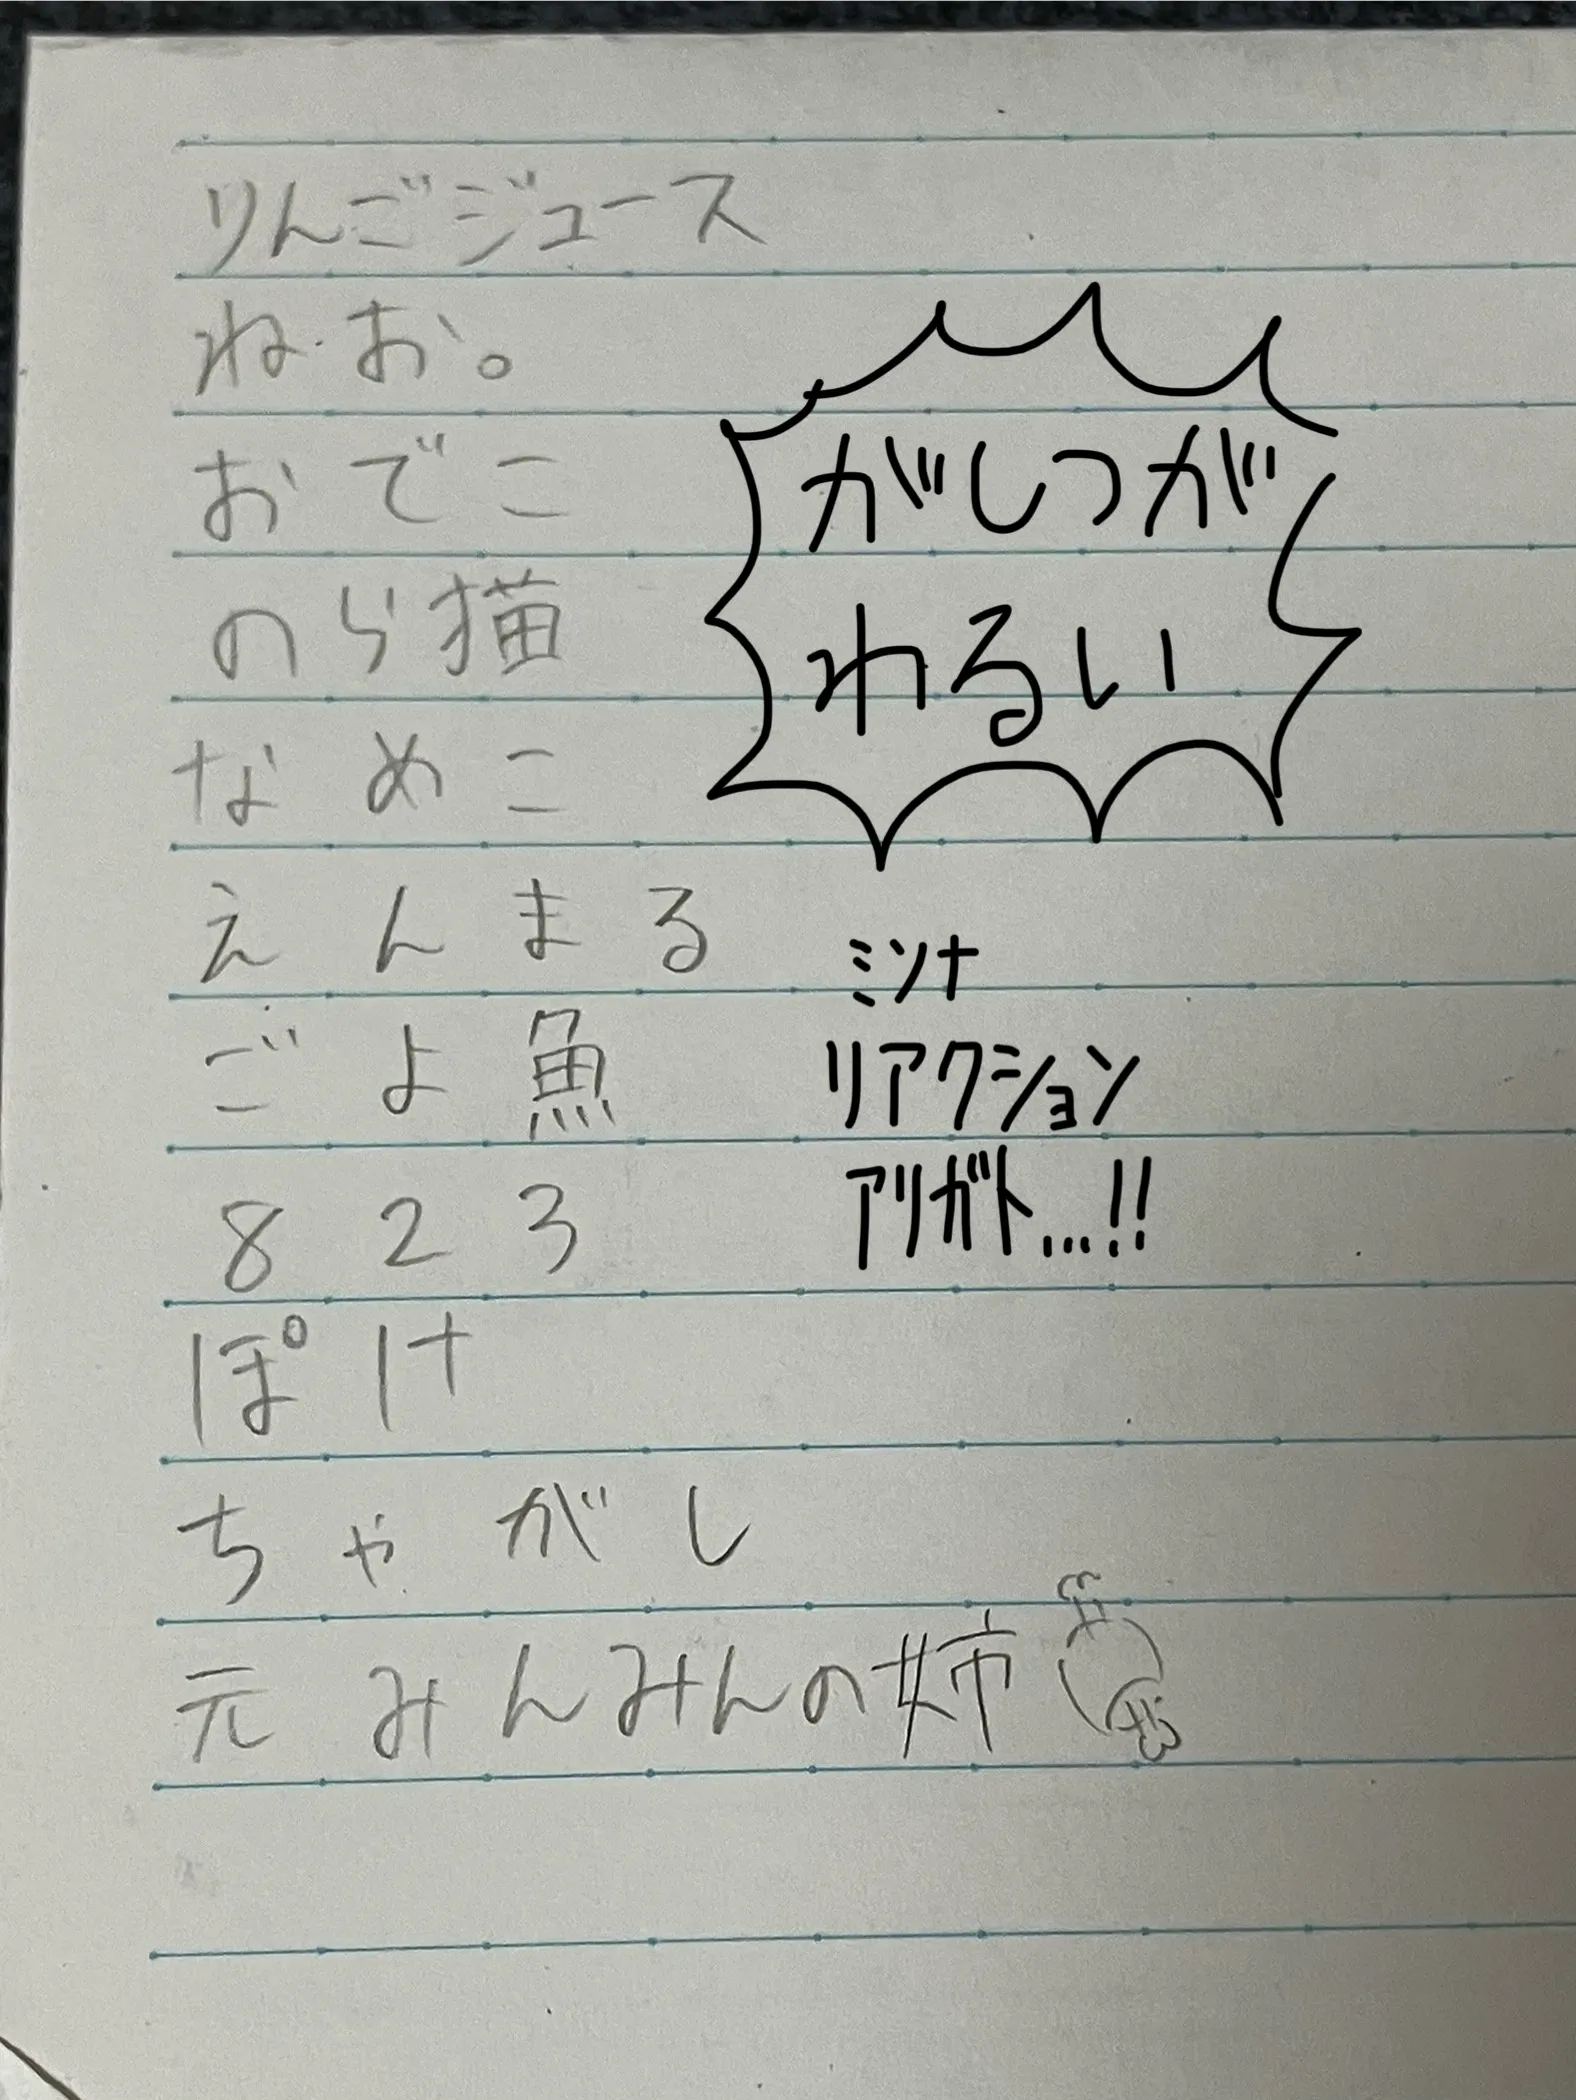 りんごジュース
ねお。
おでこ
のら猫
なめこ
えんまる
ごよ魚
823
ぽけ
ちゃがし
元みんみんの姉
がしつが
わるい
ミンナ
リアクション
アリガト...!!